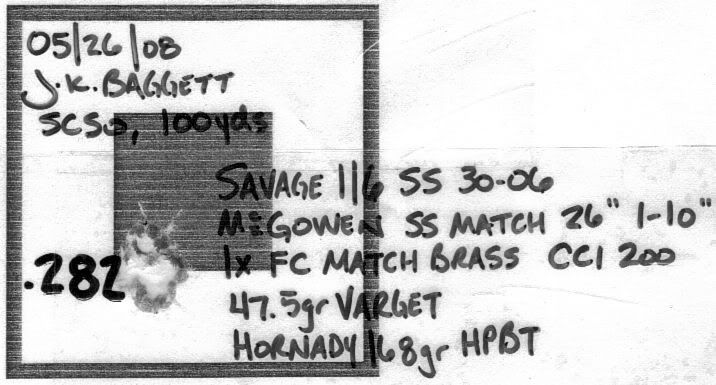 05/26/08
J.K. BAGGETT
SCSO, 100yds
SAVAGE 116 SS 30-06
McGOWEN SS MATCH 26" 1-10"
.282
1x FC MATCH BRASS CCI 200
47.5gr VARGET
HORNADY 168gr HPBT